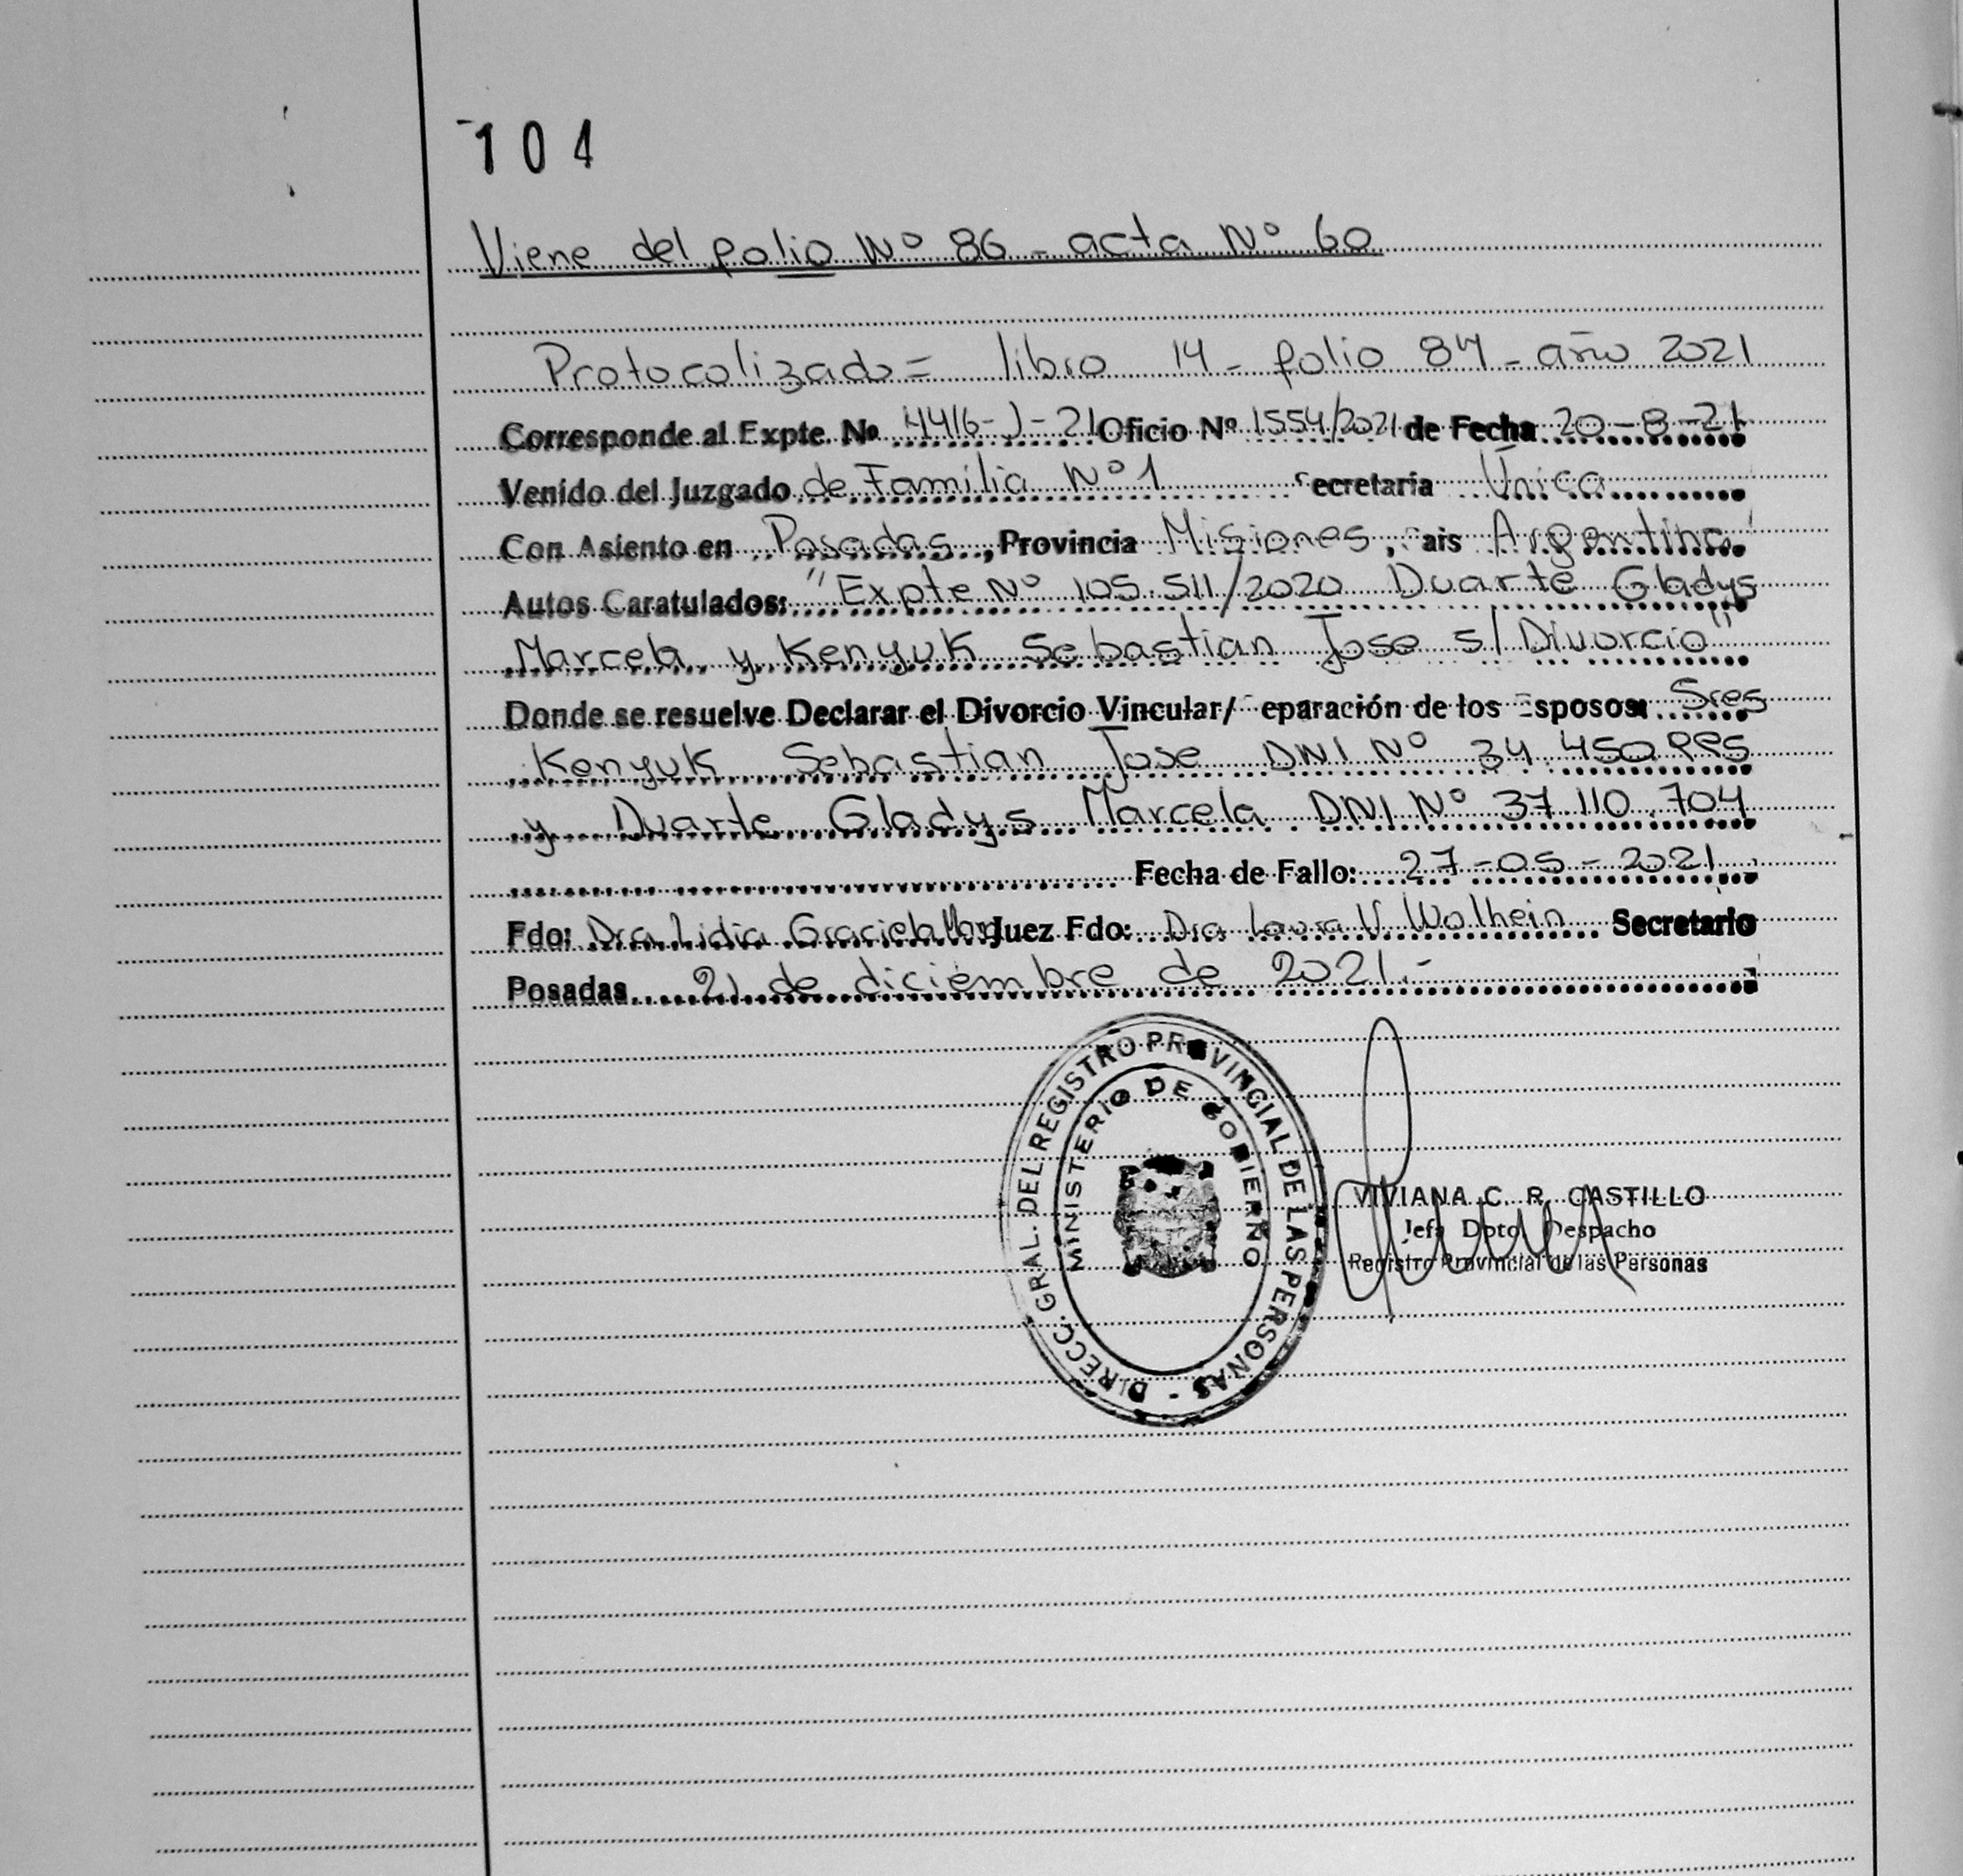 104
Viene del folio Nº 86 - acta Nº 60
Protocolizado = libro 14 - folio 84 - año 2021
Corresponde al Expte. Nº 4416-J-21 Oficio Nº 1554/2021 de Fecha 20-8-21
Venido del Juzgado de Familia Nº 1 ecretaria Única
Con Asiento en Posadas, Provincia Misiones, ais Argentina
Autos Caratulados: "Expte Nº 105.511/2020 Duarte Gladys
Marcela y Kenyuk Sebastian Jose s/ Divorcio"
Donde se resuelve Declarar el Divorcio Vincular/ eparación de los sposos: Sres
Kenyuk Sebastian Jose DNI Nº 34.450
y Duarte Gladys Marcela. DNI Nº 37.110.704
Fecha de Fallo: 27-05-2021
Fdo: Dra. Lidia Graciela Juez Fdo: Dra Laura V. Wolhein Secretario
Posadas 21 de diciembre de 2021.-
DIRECC. GRAL. DEL REGISTRO PROVINCIAL DE LAS PERSONAS -
MINISTERIO DE GOBIERNO
VIVIANA C. R. CASTILLO
Jefa Dpto. Despacho
Registro Provincial de las Personas